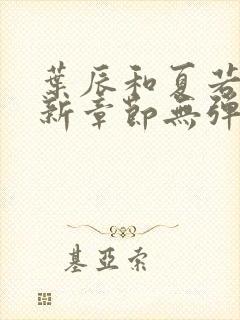 葉辰和夏若
新章節無彈
基亞索